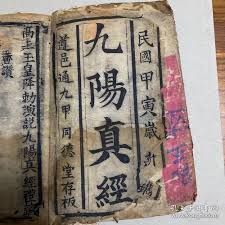 民國甲寅歲新鐫
九陽真經
道邑通九甲同德堂存板
高上玉皇降勅演説九陽真經
香讚